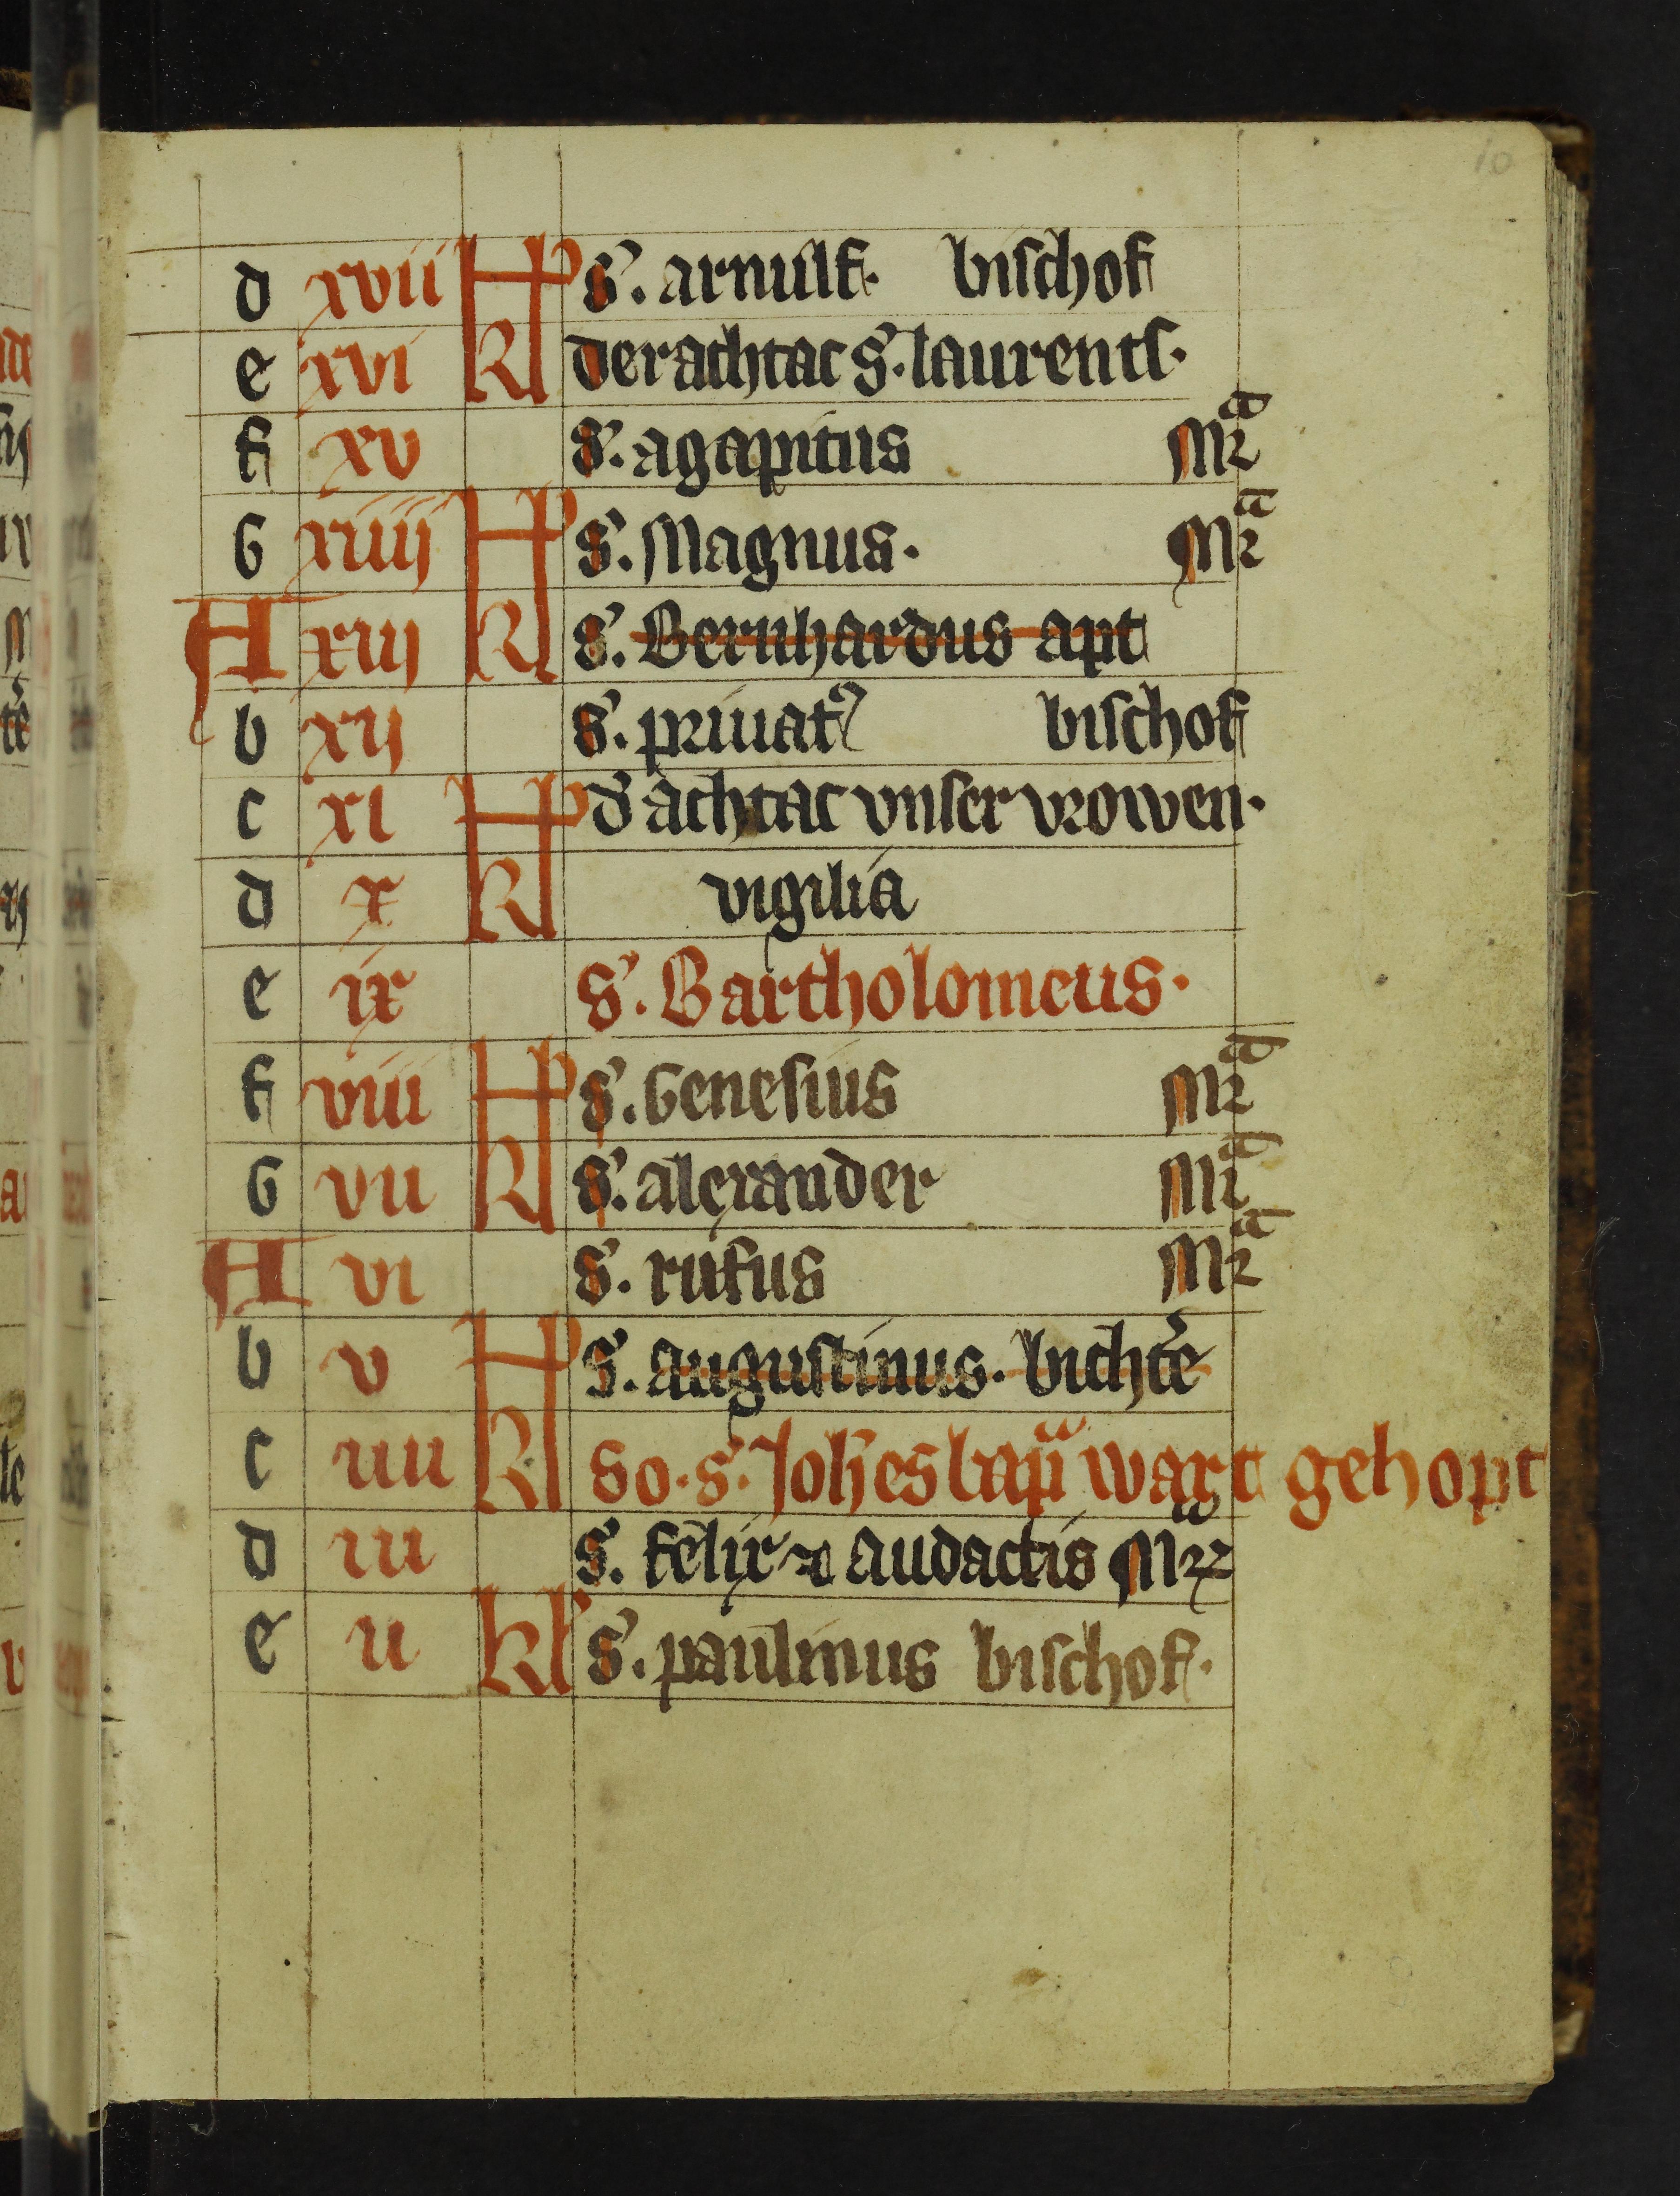 10
d xvii kl S. arnulf. bischof
e xvi der achtac S. laurentſ.
f xv S. agapitus Mrͣ
G xiiij kl S. Magnus. Mrͣ
A xiij S. Bernhardus apt
b xij S. priuatꝰ bischof
c xi kl d̕ achtac vnser vrowen.
d x vigilia
e ix S. Bartholomeus.
f viii kl S. Genesius Mrͣ
G vii S. alexander Mrͣ
A vi S. rufus Mrͣ
b v kl S. augustinus. bichte᷑
c iiii So. S. Joh̄es bap̄ wart gehopt
d iii S. felix ⁊ audactis Mr
e ii kl S. paulinus bischof.